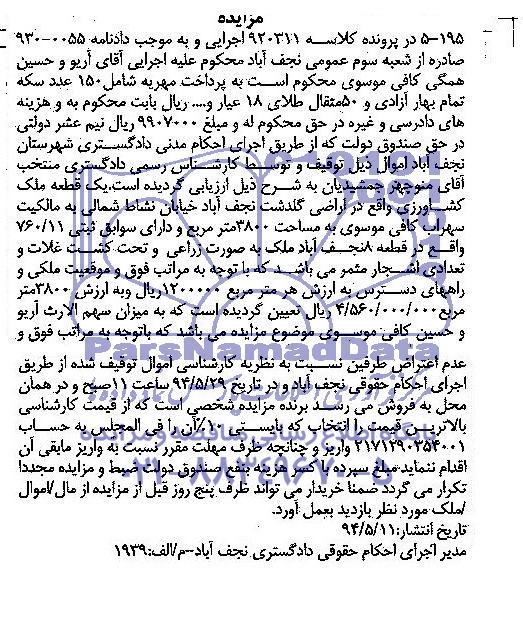 مزایده
۵-۱۹۵ در پرونده کلاسه ۹۲۰۳۱۱ اجرایی و به موجب دادنامه ۰۰۵۵-۹۳۰
صادره از شعبه سوم عمومی نجف آباد محکوم علیه اجرایی آقای آریو و حسین
همگی کافی موسوی محکوم است به پرداخت مهریه شامل۱۵۰ عدد سکه
تمام بهار آزادی و ۵۰مثقال طلای ۱۸ عیار و.... ریال بابت محکوم به و هزینه
های دادرسی و غیره در حق محکوم له و مبلغ ۹۹۰۷۰۰۰ ریال نیم عشر دولتی
در حق صندوق دولت که از طریق اجرای احکام مدنی دادگستری شهرستان
نجف آباد اموال ذیل توقیف و توسط کارشناس رسمی دادگستری منتخب
آقای منوچهر جمشیدیان به شرح ذیل ارزیابی گردیده است.یک قطعه ملک
کشاورزی واقع در اراضی گلدشت نجف آباد خیابان نشاط شمالی به مالکیت
سهراب کافی موسوی به مساحت ۳۸۰۰متر مربع و دارای سوابق ثبتی ۷۶۰/۱۱
واقع در قطعه ۸نجف آباد ملک به صورت زراعی و تحت کشت غلات و
تعدادی اشجار مثمر می باشد که با توجه به مراتب فوق و موقعیت ملکی و
راههای دسترس به ارزش هر متر مربع ۱۲۰۰۰۰۰ریال وبه ارزش ۳۸۰۰متر
مربع۴/۵۶۰/۰۰۰/۰۰۰ ریال تعیین گردیده است که به میزان سهم الارث آریو
و حسین کافی موسوی موضوع مزایده می باشد که باتوجه به مراتب فوق و
ParsNamadData
عدم اعتراض طرفین نسبت به نظریه کارشناسی اموال توقیف شده از طریق
اجرای احکام حقوقی نجف آباد و در تاریخ ۹۴/۵/۲۹ ساعت ۱۱صبح و در همان
محل به فروش می رسد برنده مزایده شخصی است که از قیمت کارشناسی
بالاترین قیمت را انتخاب که بایستی ۱۰٪آن را فی المجلس به حساب
۲۱۷۱۲۹۰۳۵۴۰۰۱ واریز و چنانچه ظرف مهلت مقرر نسبت به واریز مابقی آن
اقدام ننماید مبلغ سپرده با کسر هزینه بنفع صندوق دولت ضبط و مزایده مجددا
تکرار می گردد ضمنا خریدار می تواند ظرف پنج روز قبل از مزایده از مال/اموال
/ملک مورد نظر بازدید بعمل آورد.
تاریخ انتشار:۹۴/۵/۱۱
مدیر اجرای احکام حقوقی دادگستری نجف آباد-م/الف:۱۹۳۹